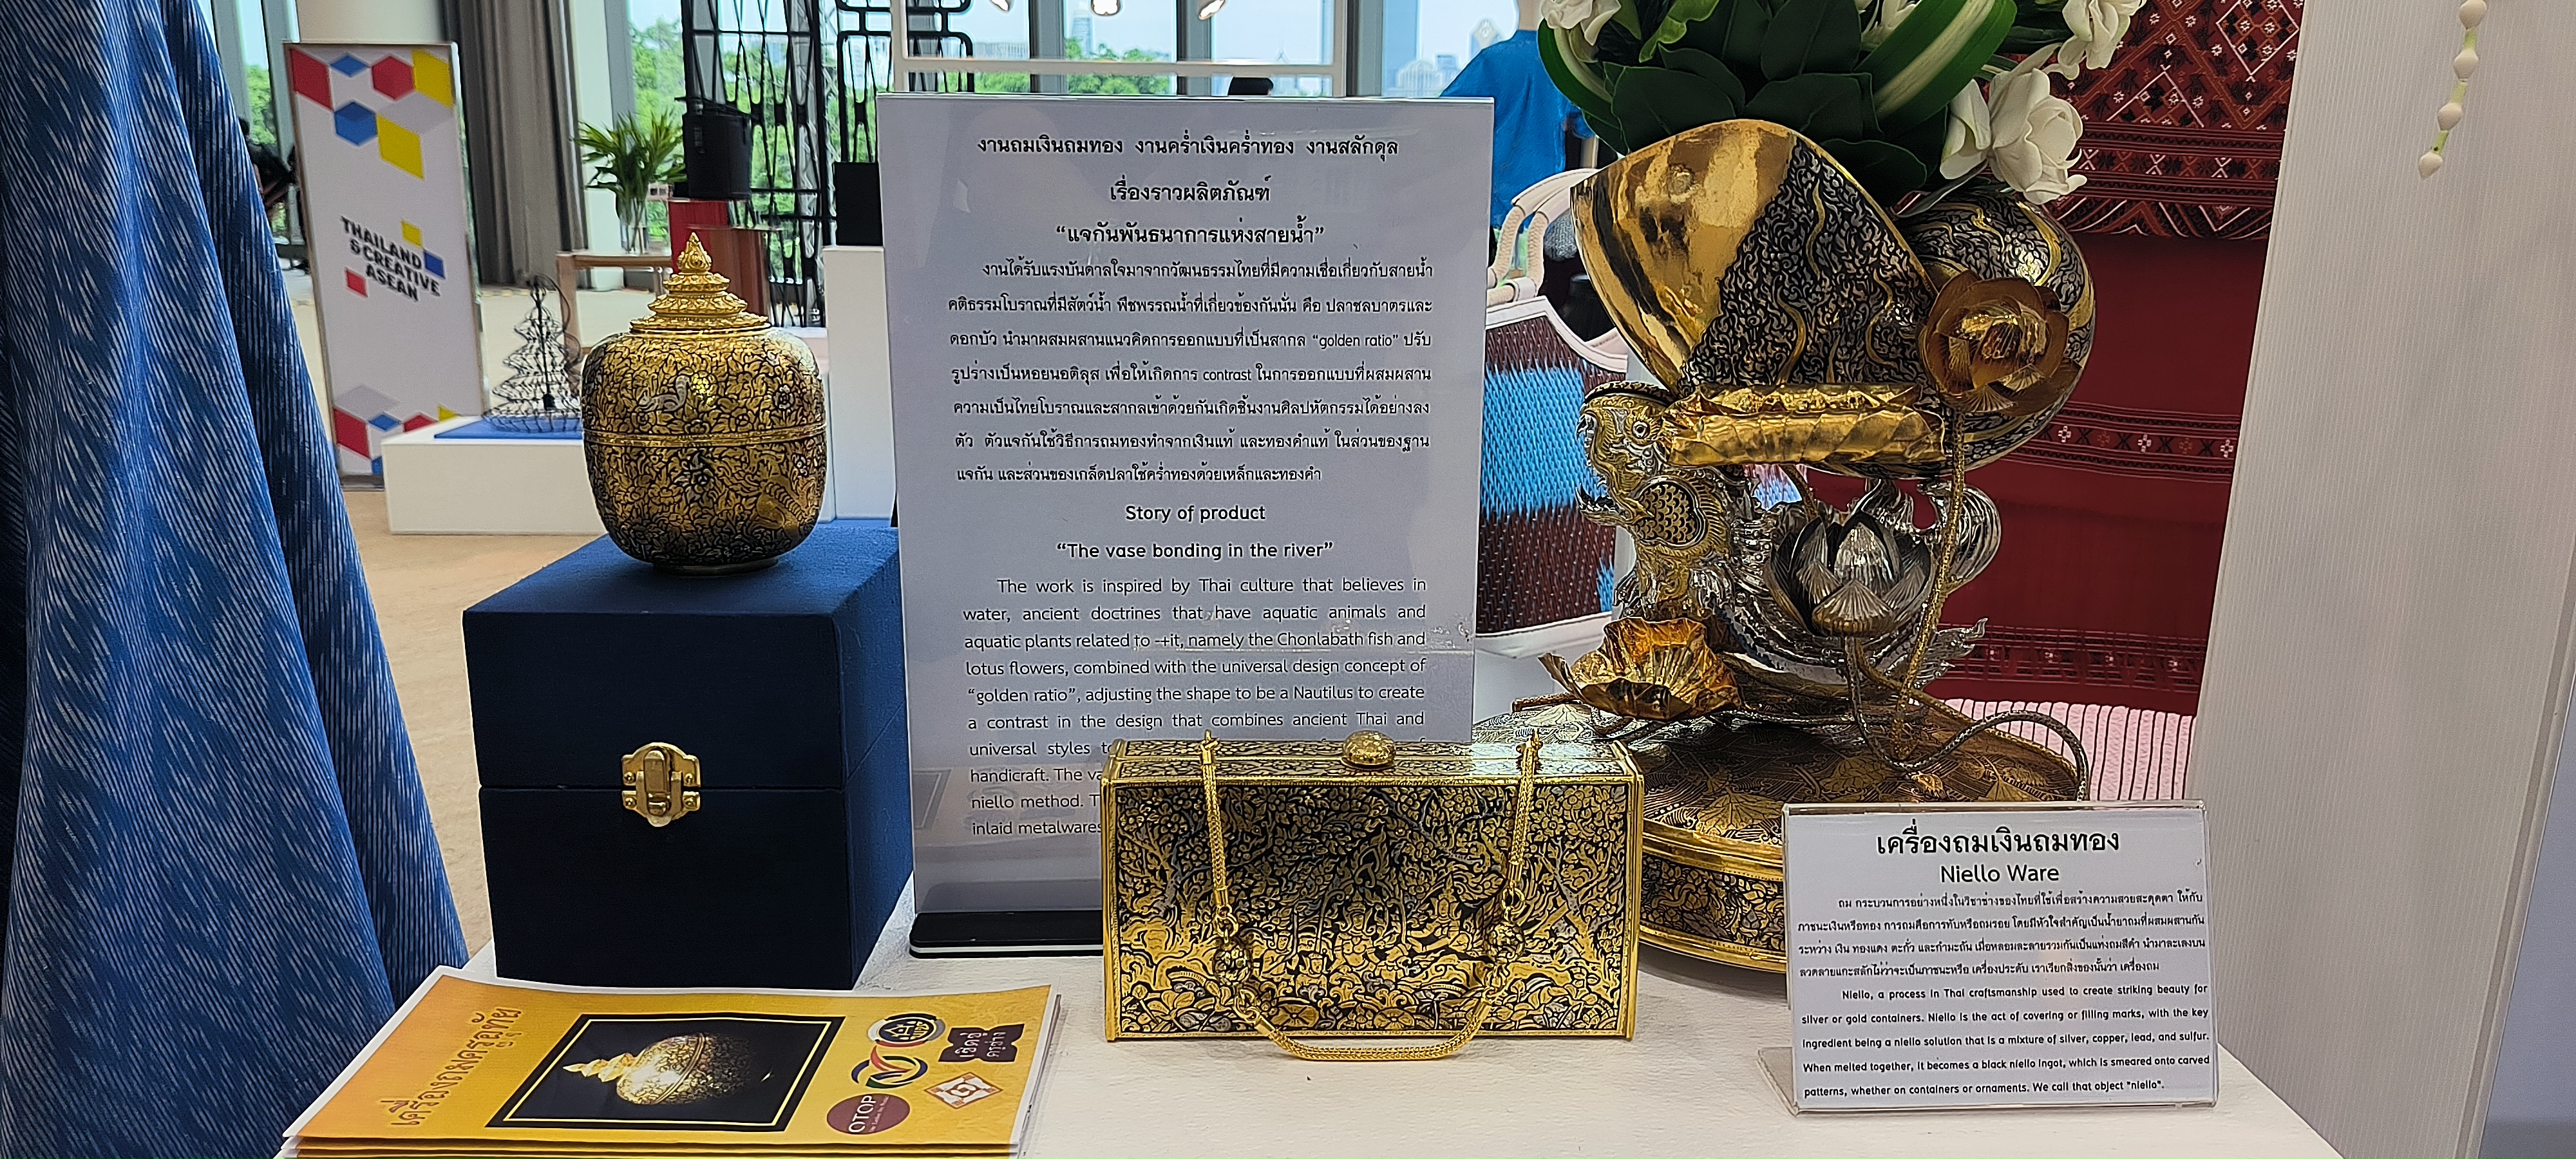 THAILAND
& CREATIVE
ASEAN
งานถมเงินถมทอง งานคร่ำเงินคร่ำทอง งานสลักดุล
เรื่องราวผลิตภัณฑ์
“แจกันพันธนาการแห่งสายน้ำ”
งานได้รับแรงบันดาลใจมาจากวัฒนธรรมไทยที่มีความเชื่อเกี่ยวกับสายน้ำ
คติธรรมโบราณที่มีสัตว์น้ำ พืชพรรณน้ำที่เกี่ยวข้องกันนั่น คือ ปลาชลบาตรและ
ดอกบัว นำมาผสมผสานแนวคิดการออกแบบที่เป็นสากล “golden ratio” ปรับ
รูปร่างเป็นหอยนอติลุส เพื่อให้เกิดการ contrast ในการออกแบบที่ผสมผสาน
ความเป็นไทยโบราณและสากลเข้าด้วยกันเกิดชิ้นงานศิลปหัตกรรมได้อย่างลง
ตัว ตัวแจกันใช้วิธีการถมทองทำจากเงินแท้ และทองคำแท้ ในส่วนของฐาน
แจกัน และส่วนของเกล็ดปลาใช้คร่ำทองด้วยเหล็กและทองคำ
Story of product
“The vase bonding in the river”
The work is inspired by Thai culture that believes in
water, ancient doctrines that have aquatic animals and
aquatic plants related to -+it, namely the Chonlabath fish and
lotus flowers, combined with the universal design concept of
“golden ratio”, adjusting the shape to be a Nautilus to create
a contrast in the design that combines ancient Thai and
universal styles
handicraft. The
niello method.
inlaid metalwares
เครื่องถมเงินถมทอง
Niello Ware
ถม กระบวนการอย่างหนึ่งในวิชาช่างของไทยที่ใช้เพื่อสร้างความสวยสะดุดตา ให้กับ
ภาชนะเงินหรือทอง การถมคือการทับหรือถมรอย โดยมีหัวใจสำคัญเป็นน้ำยาถมที่ผสมผสานกัน
ระหว่าง เงิน ทองแดง ตะกั่ว และกำมะถัน เมื่อหลอมละลายรวมกันเป็นแท่งถมสีดำ นำมาละเลงบน
ลวดลายแกะสลักไม่ว่าจะเป็นภาชนะหรือ เครื่องประดับ เราเรียกสิ่งของนั้นว่า เครื่องถม
Niello, a process in Thai craftsmanship used to create striking beauty for
silver or gold containers. Niello is the act of covering or filling marks, with the key
ingredient being a niello solution that is a mixture of silver, copper, lead, and sulfur.
When melted together, it becomes a black niello ingot, which is smeared onto carved
patterns, whether on containers or ornaments. We call that object "niello".
เครื่องถมครูอุทัย
เชิดชู
ครูช่าง
OTOP